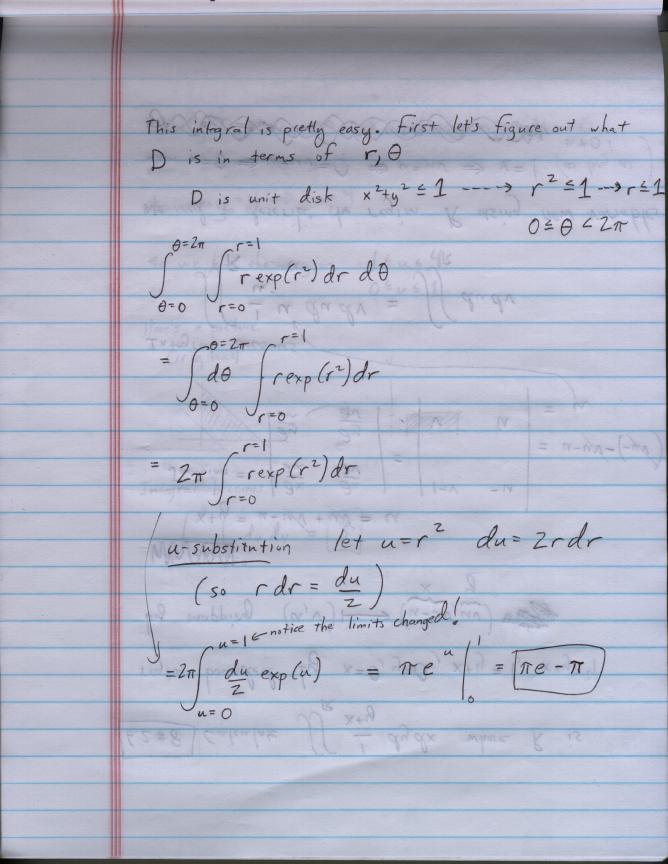 This integral is pretty easy. First let's figure out what
D is in terms of r, θ
D is unit disk x²+y² ≤ 1 ----> r² ≤ 1 --> r ≤ 1
0 ≤ θ < 2π
∫_{θ=0}^{θ=2π} ∫_{r=0}^{r=1} r exp(r²) dr dθ
= ∫_{θ=0}^{θ=2π} dθ ∫_{r=0}^{r=1} r exp(r²) dr
= 2π ∫_{r=0}^{r=1} r exp(r²) dr
u-substitution let u = r² du = 2r dr
(so r dr = du/2)
u=1 ← notice the limits changed!
= 2π ∫_{u=0}^{u=1} du/2 exp(u) = πe^u |_0^1 = πe - π